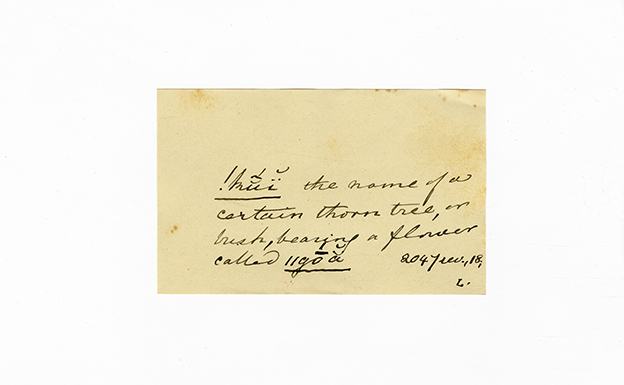 !kúï the name of a
certain thorn tree, or
bush, bearing a flower
called ||gō ä 2047 rev., 18,
L.